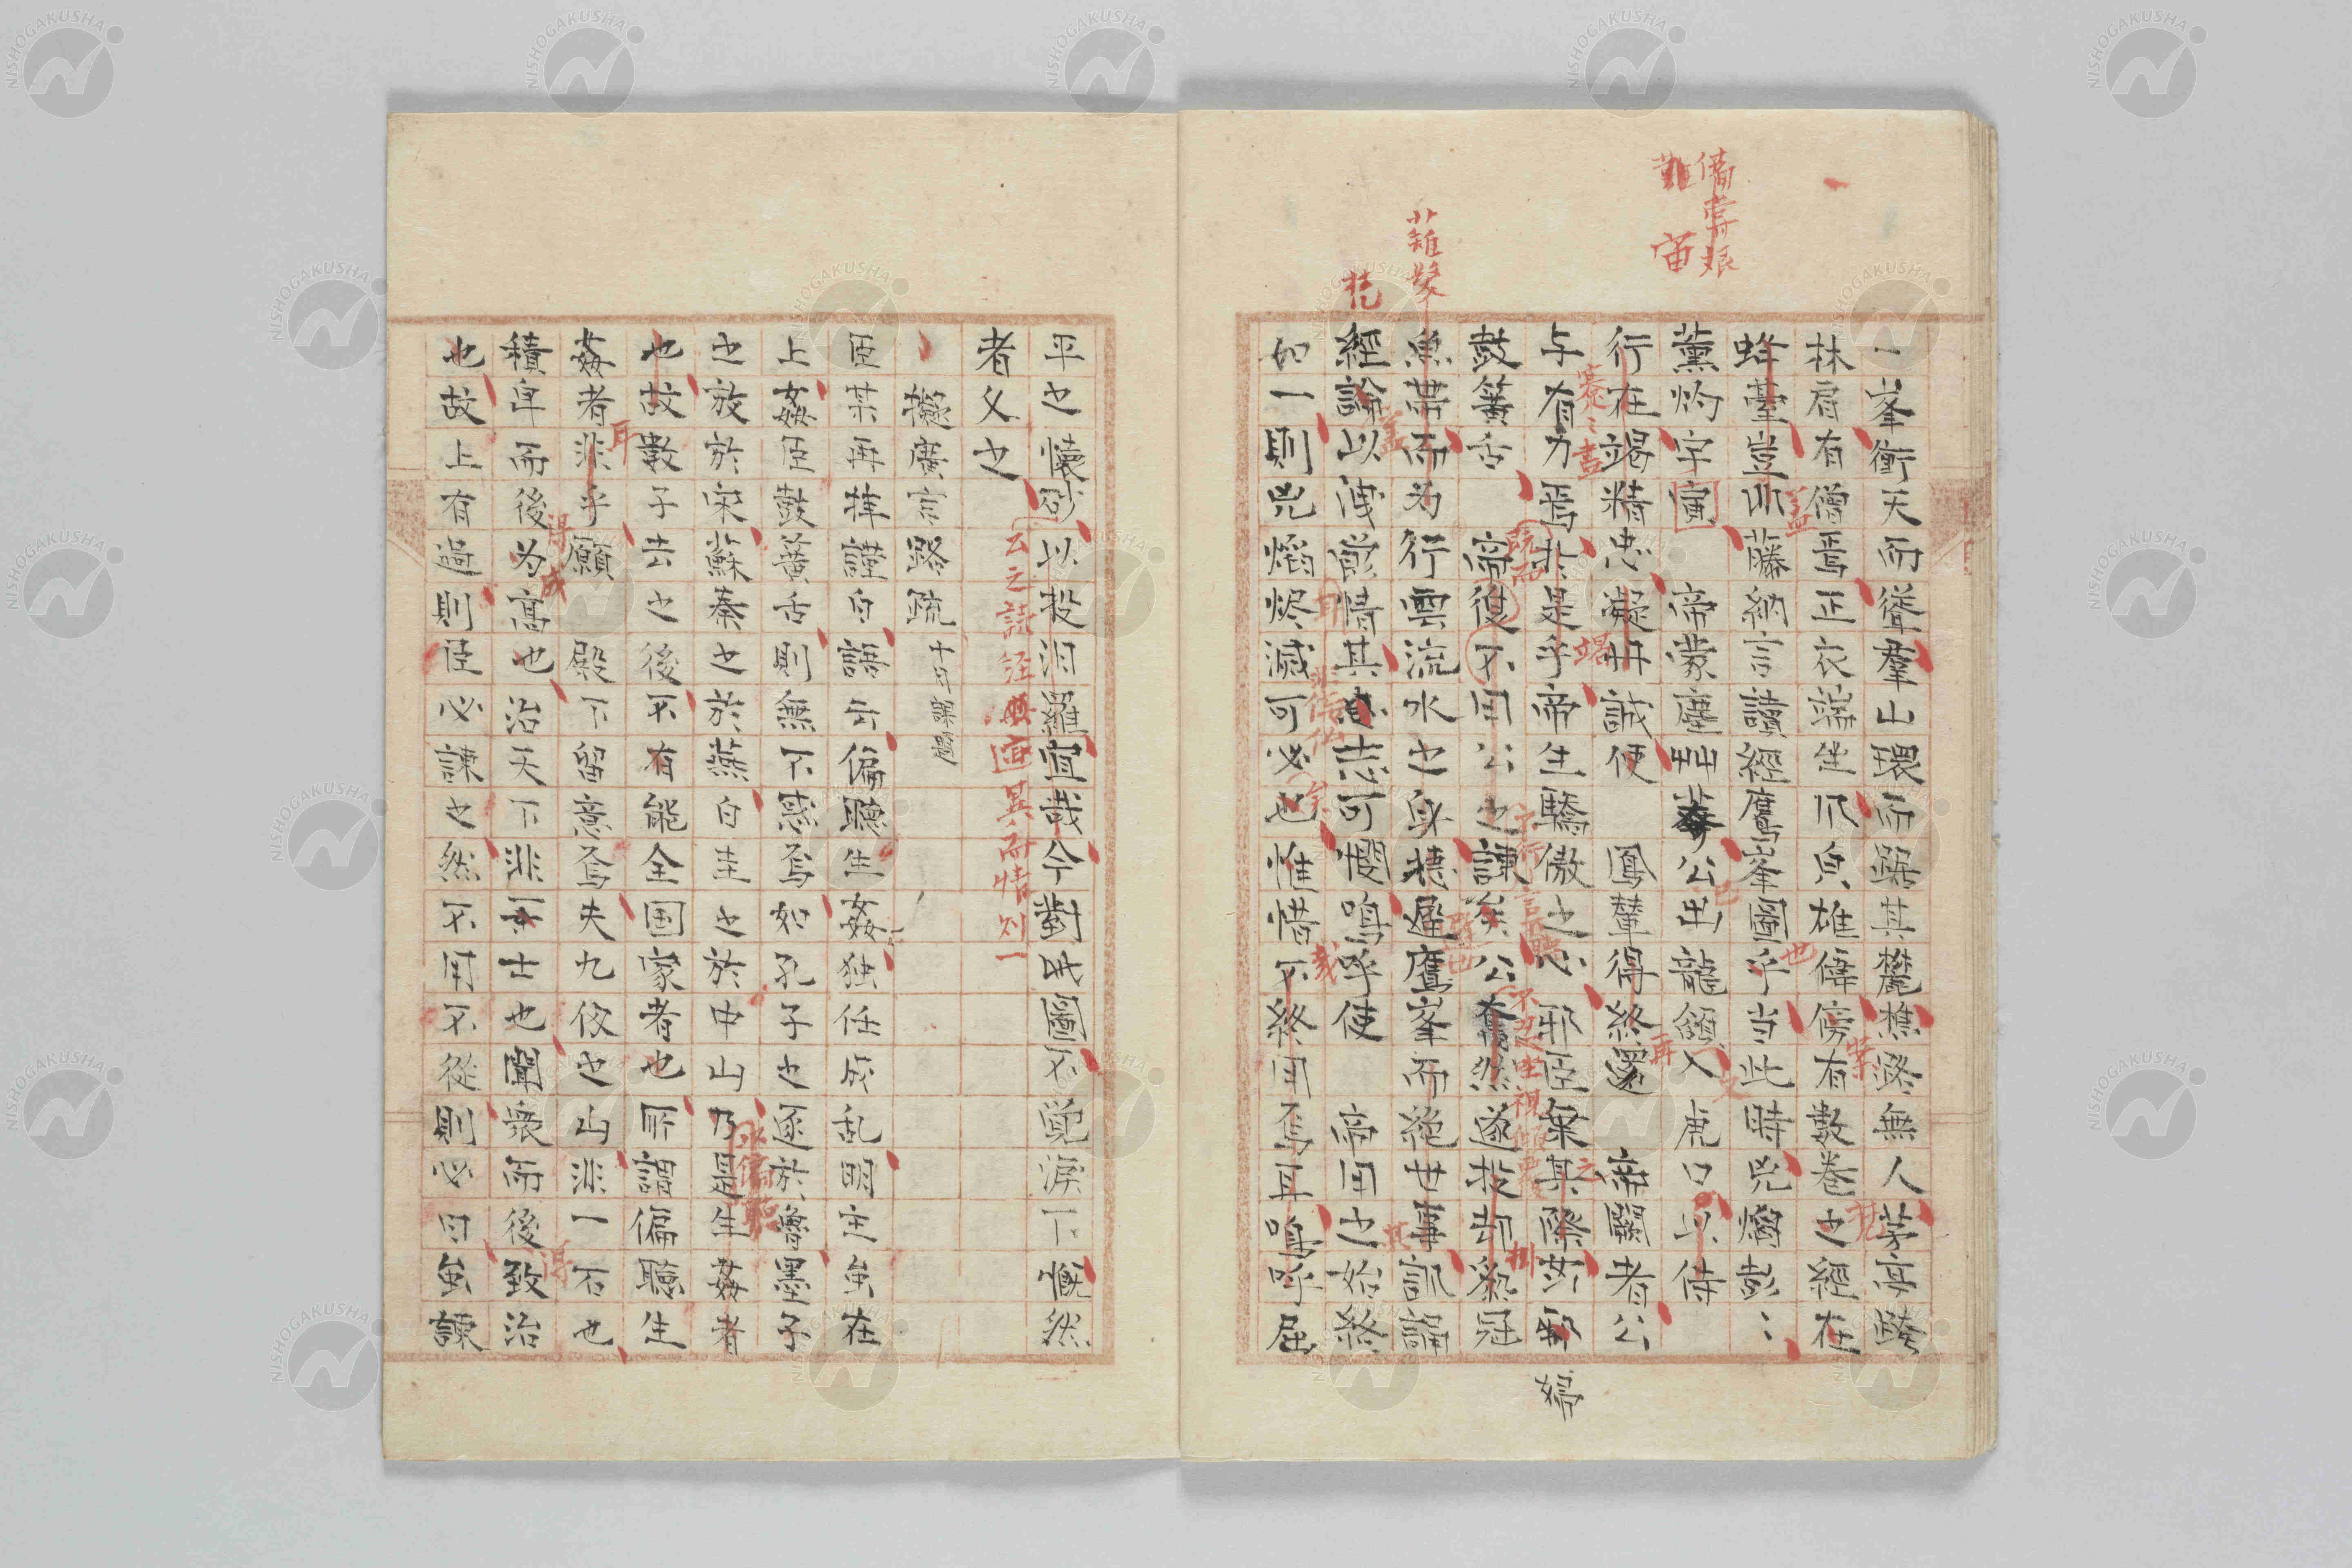 一峯衝天而聳群山環而𨂻其麓樵踪無人茅亭隣
林肩有僧焉正衣端坐凡貞雄偉傍有數巻之經在
蜂臺豈非藤納言讀經鷹峯圖乎当此時兇焰彭〻
薰灼宇寅 帝蒙塵艸莽公出龍頷入虎口以侍
行在竭精忠凝丹誠便 鳳輦得終還 帝闕者公
与有力焉於是乎帝生驕傲之心耶臣乗其隙妬寵
鼓簧舌 帝復不用公之諫矣公奮然遂投却冠
魚帯而为行雲流水之身棲遲鷹峯而絶世事訊誦
經論以洩欝悖其忠志可憫嗚呼使 帝用之始終
如一則兇焰燼滅可必也惟惜不終用焉耳嗚呼屈
平之懐砂以投汨羅宜哉今對此圖不覚涙下慨然
者久之
擬廣言路疏 十五課題
臣某再拝謹白語云偏聴生姦独任成乱明主虽在
上姦臣鼓簧舌則無不惑焉如孔子之逐於魯墨子
之放於宋蘇秦之於燕白圭之於中山乃是生姦者
也故數子去之後不有能全国家者也所謂偏聴生
姦者非乎願 殿下留意焉夫九仭之山非一石也
積卑而後为高也治天下非一士也聞衆而後致治
也故上有過則臣必諫之然不用不從則必曰虽諫
備尋娘
宙
薙髮
耳
盖
也
再
公之詩経
異而惜別一
得
成